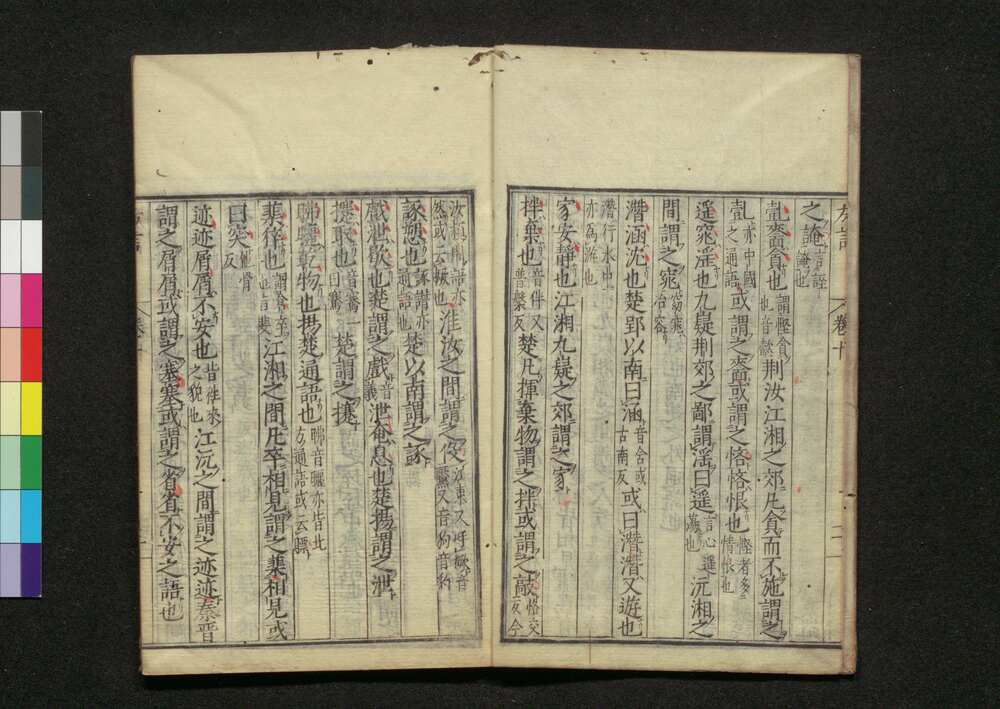 亄嗇貪也謂慳貪也音懿荊汝江湘之郊凡貪而不施謂之
亄亦中國之通語或謂之嗇或謂之悋悋恨也慳者多情恨也
遥窕淫也九嶷荆郊之鄙謂淫曰遥言心遥蕩也沅湘之
間謂之窕窈窕冶容
潛涵沈也楚郢以南曰涵音含或古南反或曰潛潛又遊也
潛行水中亦為游也
家安靜也江湘九嶷之郊謂之家
拌棄也音伴又普槃反楚凡揮棄物謂之拌或謂之敲恪交反今
汝潁間語亦然或云也淮汝之間謂之江東又呼撅音黶又音狗音豹
諑愬也諑譖亦通語也楚以南謂之諑
戲泄歇也楚謂之戲音義泄奄息也楚揚謂之泄
攓取也音騫一曰騫楚謂之攓
昲曬乾物也揚楚通語也昲音曬亦皆北方通語或云瞟
䒁猝也謂倉卒也音斐江湘之間凡卒相見謂之䒁相見或
曰突他骨反
迹迹屑屑不安也皆往來之貌也江沅之間謂之迹迹秦晉
謂之屑屑或謂之塞塞或謂之省省不安之語也